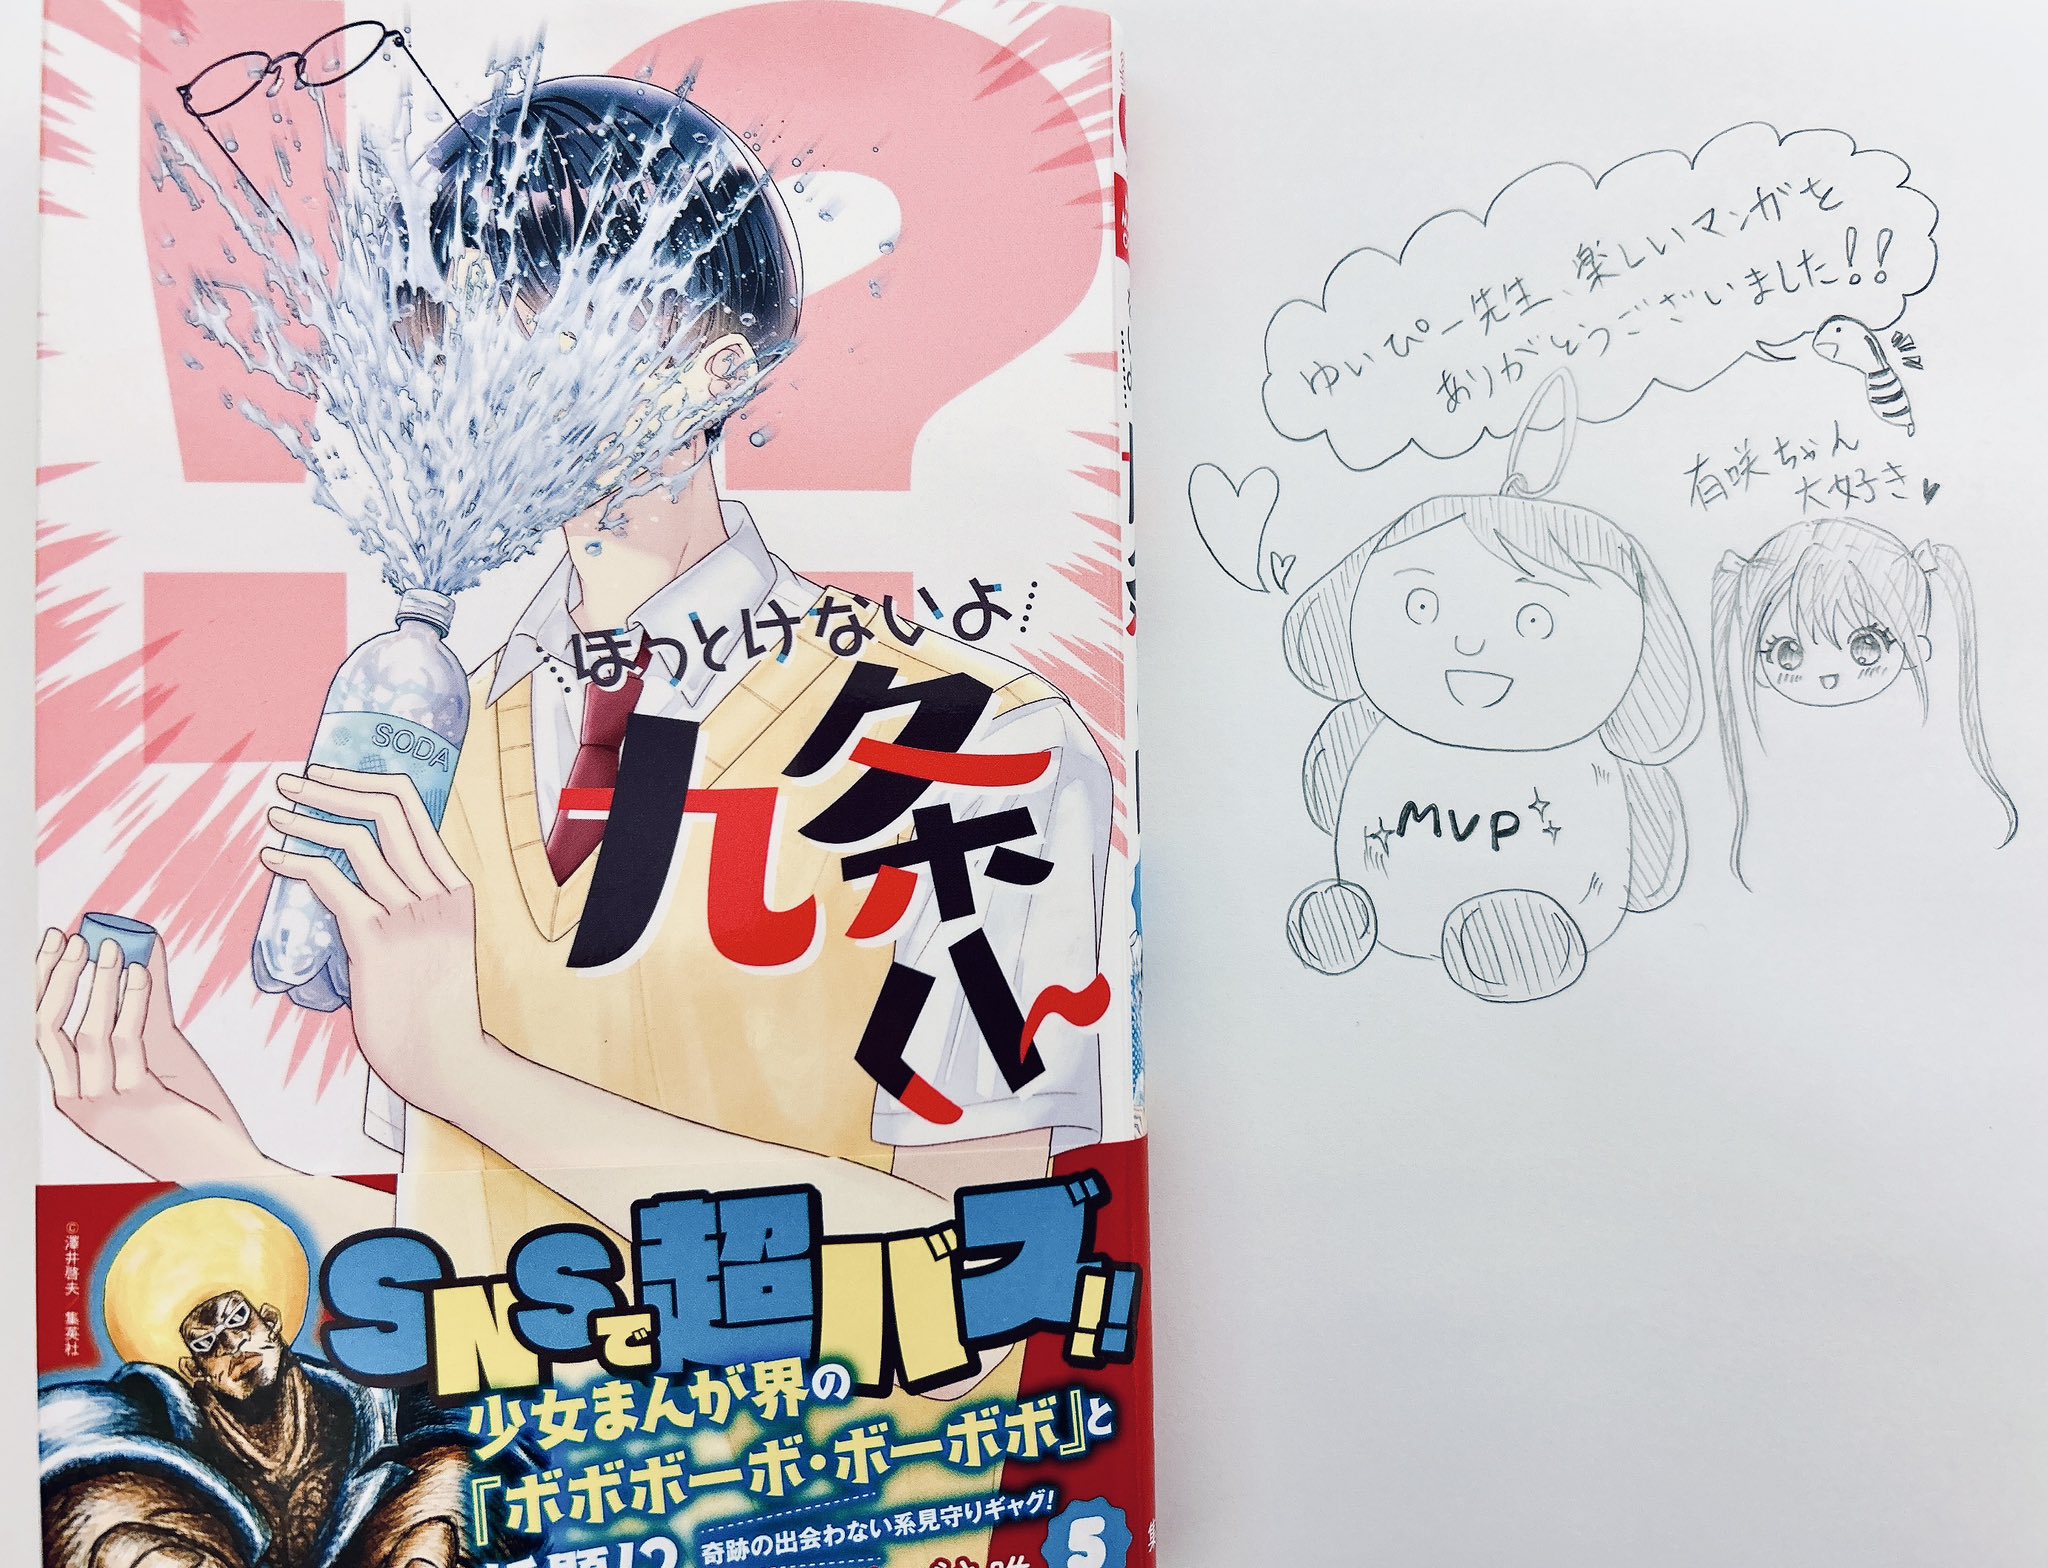 SODA
ほっとけないよ
九条くん
©澤井啓夫/集英社
SNSで超バズ!!
少女まんが界の
『ボボボーボ・ボーボボ』と
奇跡の出会わない系見守りギャグ!
5
ゆいぴー先生、楽しいマンガを
ありがとうございました!!
有咲ちゃん
大好き♥
MVP